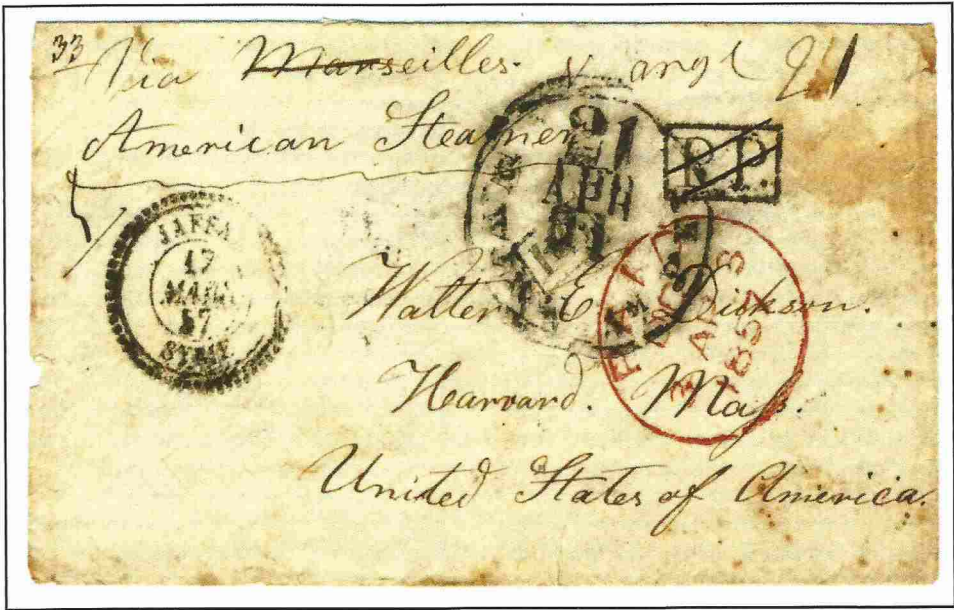 33
Via Marseilles. & angl 21
American Steamer
21
APR
PP
JAFFA
17
MARS
57
SYRIE
PAID
3 AP 3
1857
Walter E. Dickson.
Harvard. Mass.
United States of America.